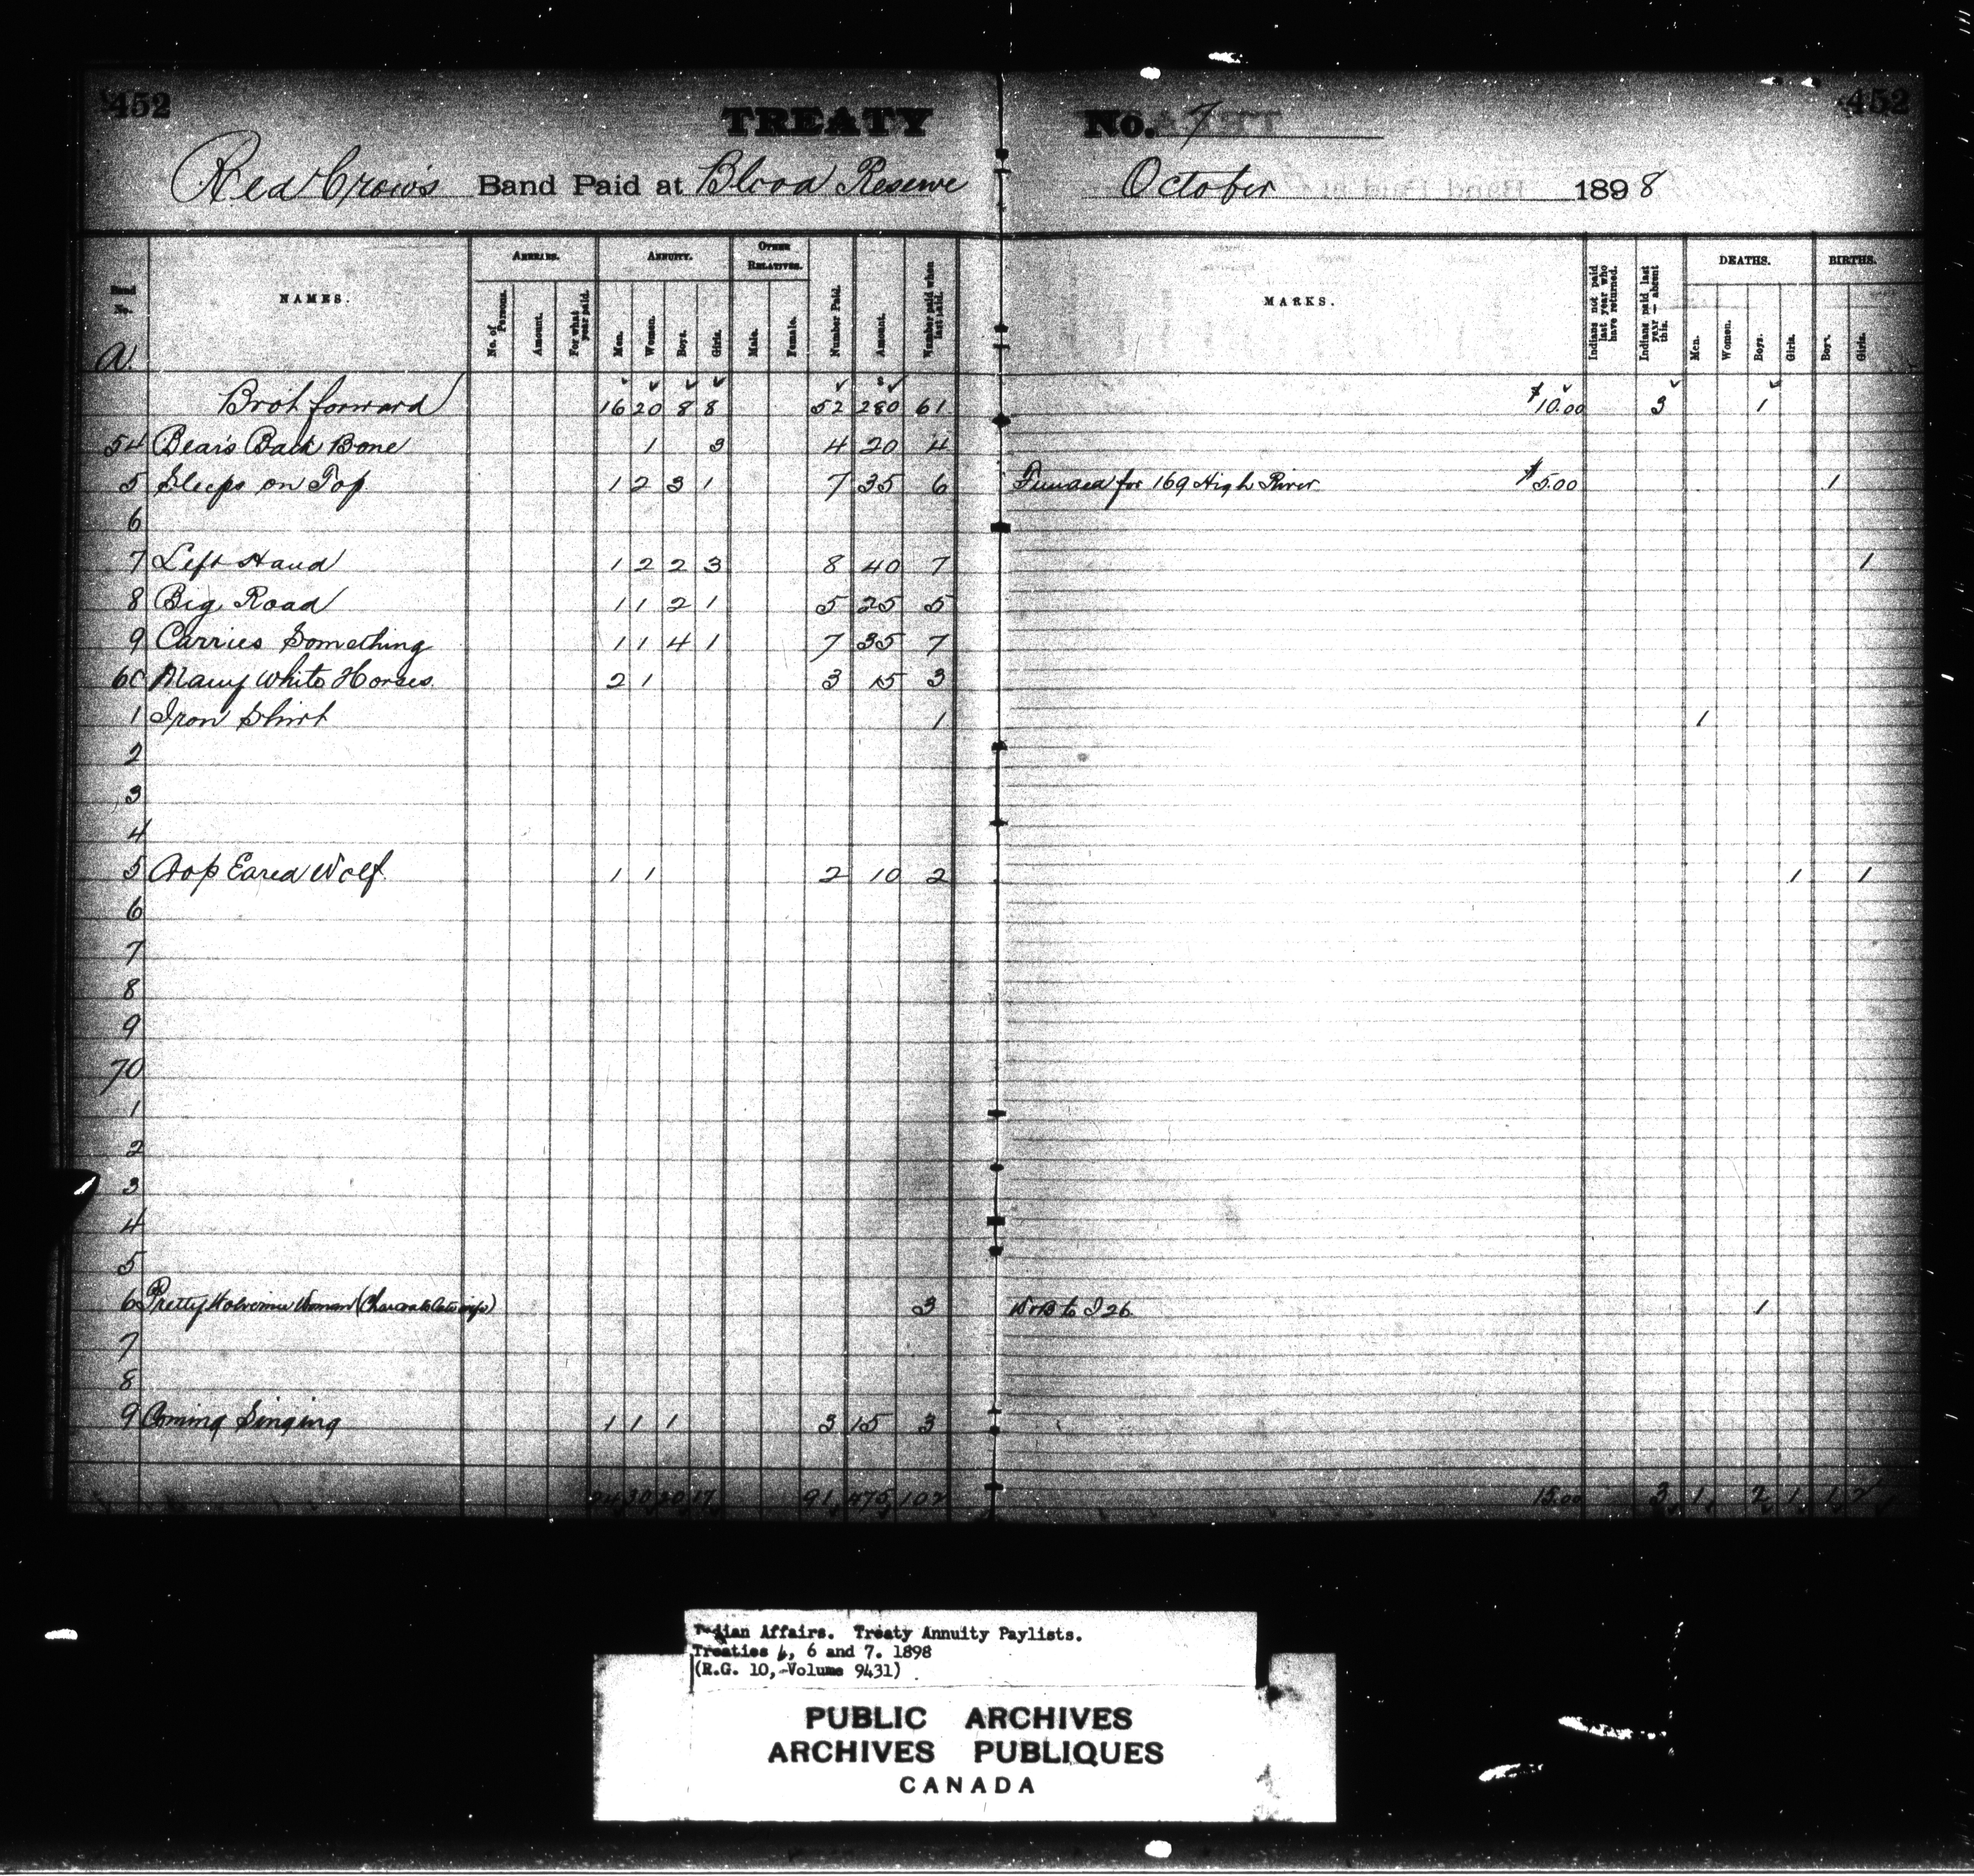 452 TREATY No. 7 452
Red Crow's Band Paid at Blood Reserve October 1898
Band No. NAMES. ARREARS. ANNUITY. OTHER RELATIVES. Number Paid. Amount. Number paid when last paid. MARKS. Indians not paid last year who have returned. Indians paid last year — absent this. DEATHS. BIRTHS.
No. of Persons. Amount. For what year paid. Men. Women. Boys. Girls. Male. Female. Men. Women. Boys. Girls. Boys. Girls.
A.
Brot forward 16 20 8 8 52 280 61 $10.00 3 1
54 Bear's Back Bone 1 3 4 20 4
5 Sleeps on Top 1 2 3 1 7 35 6 Funded for 169 High River $5.00 1
6
7 Left Hand 1 2 2 3 8 40 7 1
8 Big Road 1 1 2 1 5 25 5
9 Carries Something 1 1 4 1 7 35 7
60 Many White Horses. 2 1 3 15 3
1 Iron Shirt 1 1
2
3
4
5 Crop Eared Wolf. 1 1 2 10 2 1 1
6
7
8
9
70
1
2
3
4
5
6 Pretty Wolverine Woman (Charcoal's late wife) 3 to I 26. 1
7
8
9 Coming Singing 1 1 1 3 15 3
24 30 20 17 91 475 102 15.00 3 1 2 1 1 2
Indian Affairs. Treaty Annuity Paylists.
Treaties 4, 6 and 7. 1898
(R.G. 10, Volume 9431)
PUBLIC ARCHIVES
ARCHIVES PUBLIQUES
CANADA